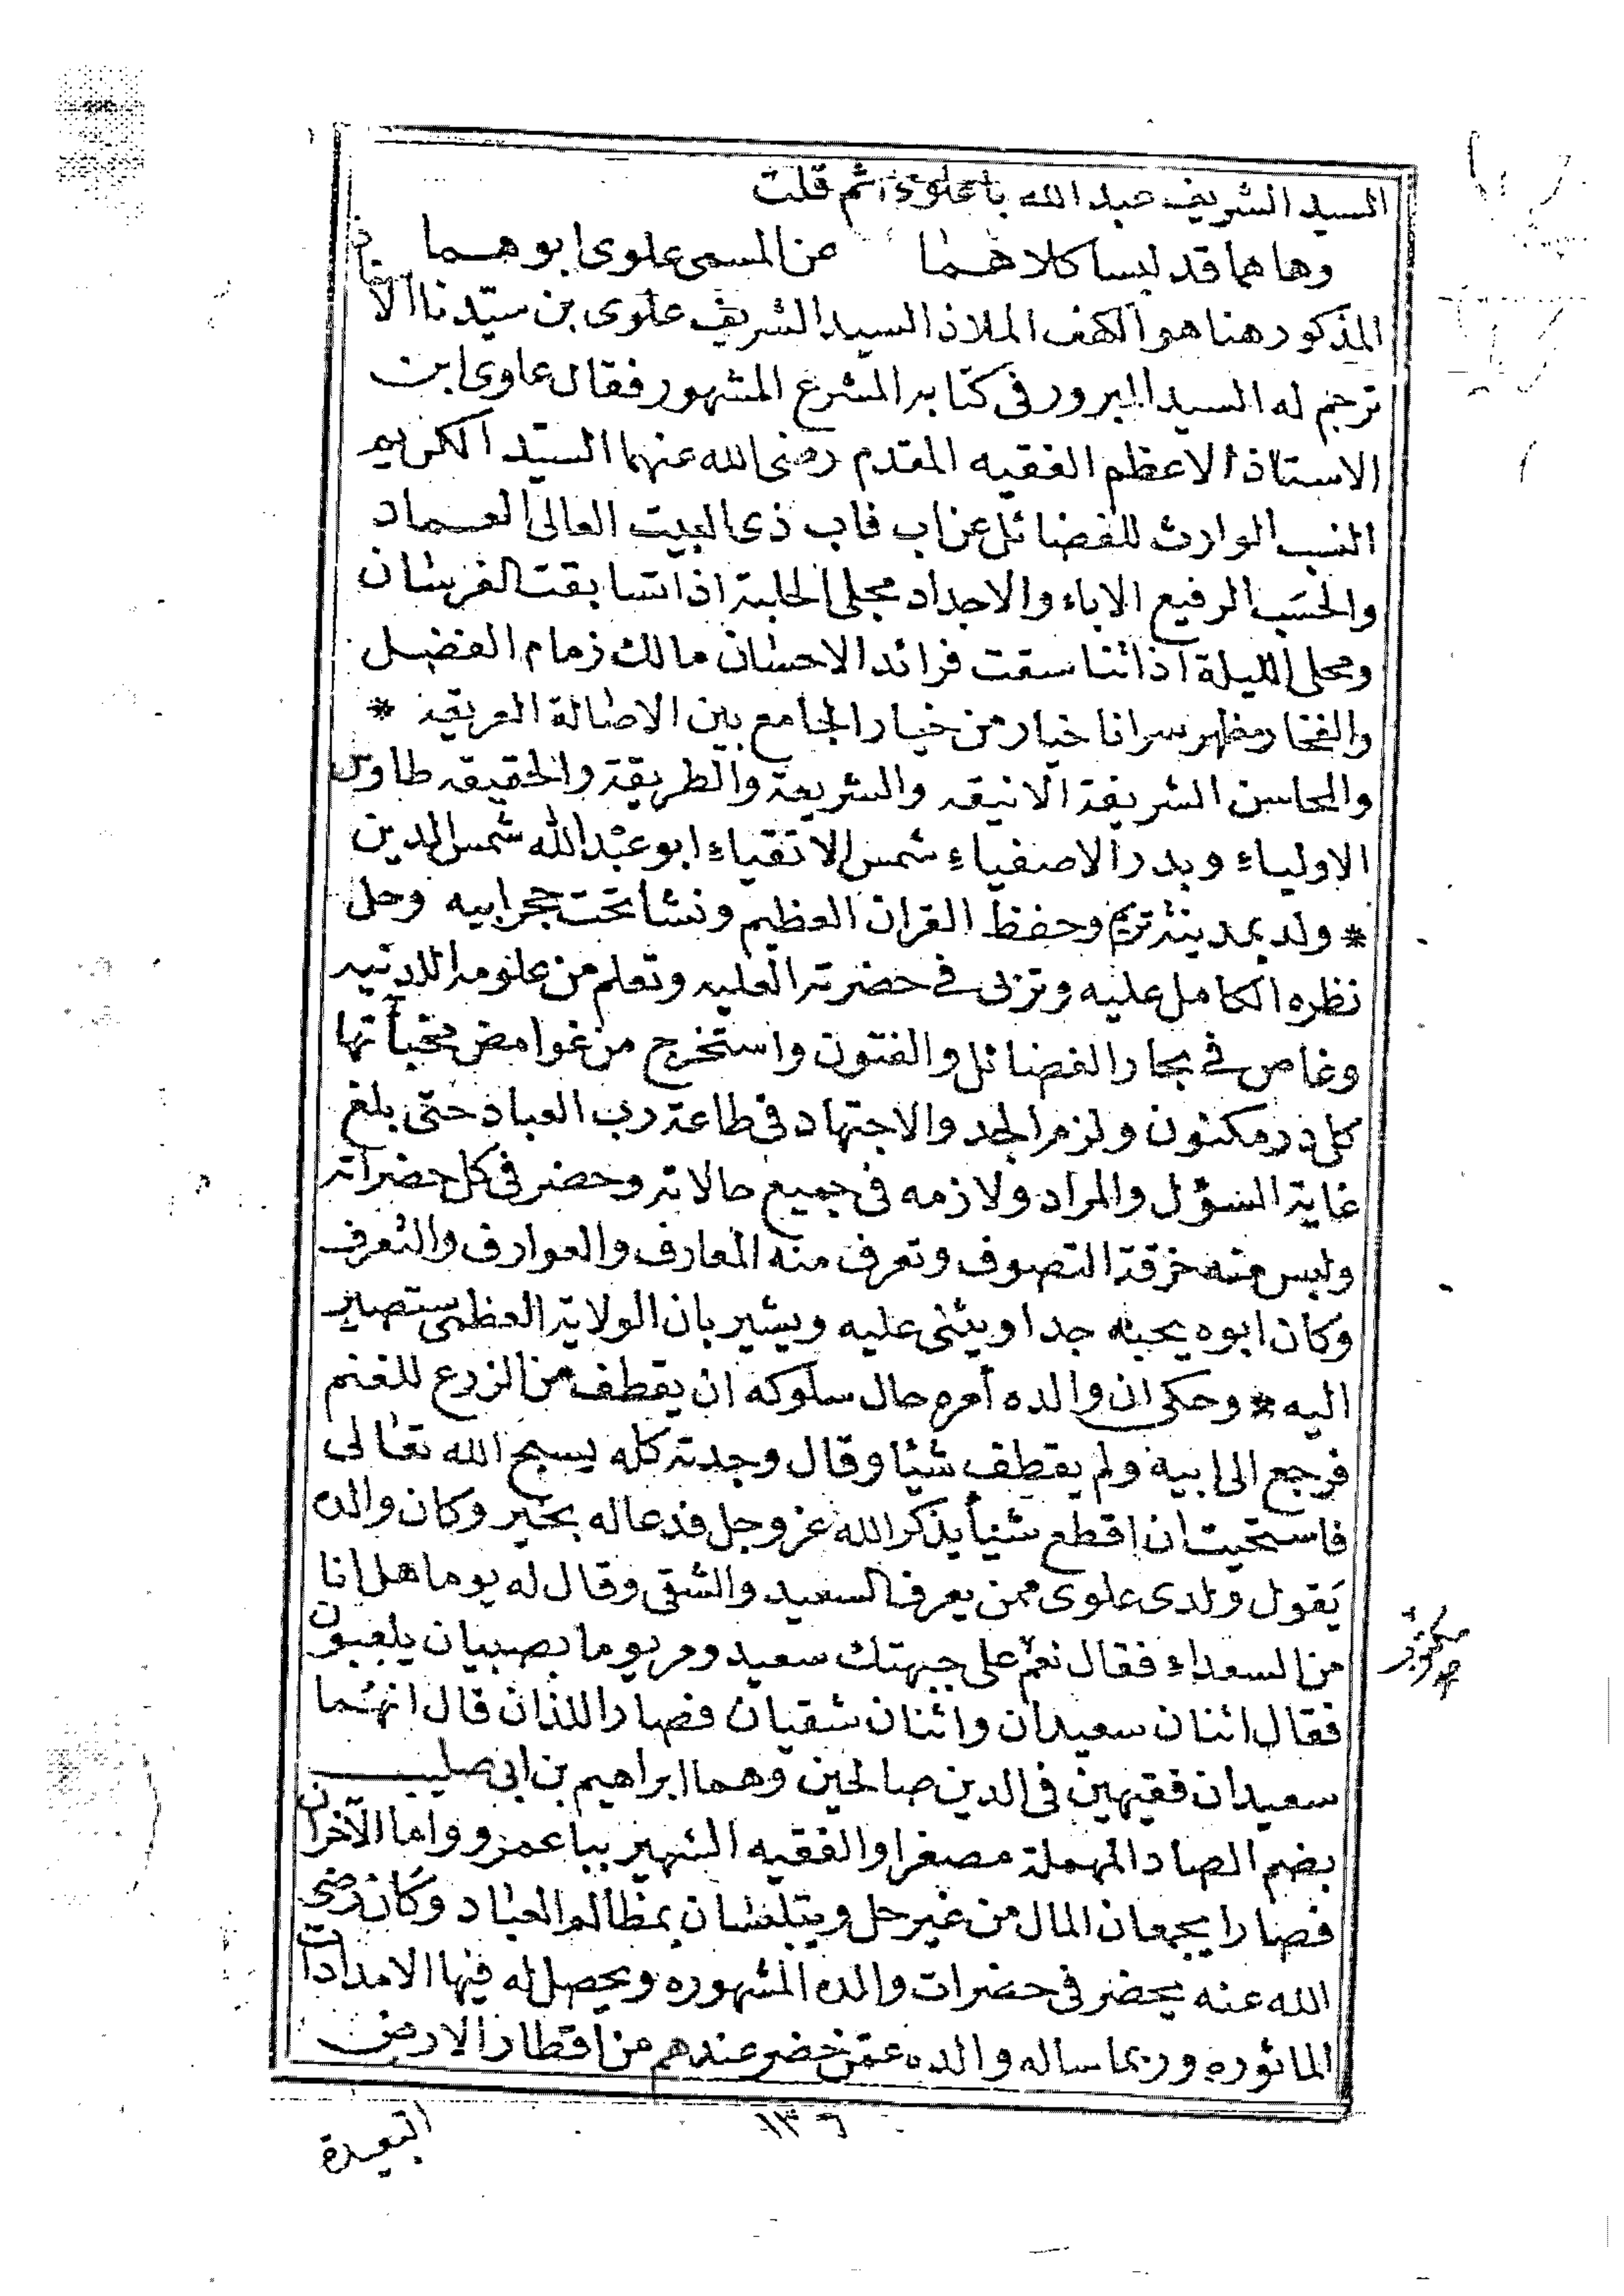 السيد الشريف عبد الله باعلوى ثم قلت
وها هما قد لبسا كلاهما عن المسمى علوى ابوهما
المذكور هنا هو الكهف الملاذ السيد الشريف علوى بن سيدنا الا
ترجم له السيد المبرور فى كتابه المشرع المشهور فقال علوى ابن
الاستاذ الاعظم الفقيه المقدم رضى الله عنهما السيد الكريم
النسب الوارث للفضائل عن اب فاب ذى البيت العالى العماد
والحسب الرفيع الاباء والاجداد مجلى الحلبة اذا تسابقت الفرسان
ومحلى الليلة اذا تناسقت فرائد الاحسان مالك زمام الفضل
والفخار مظهر سر انا خيار من خيار الجامع بين الاصالة العريقة *
والمحاسن الشريفة الانيقه والشريعة والطريقة والحقيقه طاوس
الاولياء وبدر الاصفياء شمس الاتقياء ابو عبد الله شمس الدين
* ولد بمدينة تريم وحفظ القران العظيم ونشا تحت حجر ابيه وحل
نظره الكامل عليه وتربى فى حضرته العليه وتعلم من علومه اللدنيه
وغاص فى بحار الفضائل والفنون واستخرج من غوامض مخبآتها
كل در مكنون ولزم الجد والاجتهاد فى طاعة رب العباد حتى بلغ
غاية السؤل والمراد ولازمه فى جميع حالاته وحضر فى كل حضراته
ولبس منه خرقة التصوف وتعرف منه المعارف والعوارف والتعرف
وكان ابوه يحبه جدا ويثنى عليه ويشير بان الولاية العظمى ستصير
اليه * وحكى ان والده أمره حال سلوكه ان يقطف من الزرع للغنم
فرجع الى ابيه ولم يقطف شئا وقال وجدته كله يسبح الله تعالى
فاستحيت ان اقطع شئيأ يذكر الله عز وجل فدعا له بخير وكان والده
يقول ولدى علوى ممن يعرف السعيد والشقى وقال له يوما هل انا
من السعداء فقال نعم على جبهتك سعيد ومر يوما بصبيان يلعبون
فقال اثنان سعيدان واثنان شقيان فصارا اللذان قال انهما
سعيدان فقيهين فى الدين صالحين وهما ابراهيم بن ابى صليب
بضم الصاد المهملة مصغرا والفقيه الشهير ببا عمرو واما الآخران
فصارا يجمعان المال من غير حل ويتلغسان بمظالم العباد وكان رضى
الله عنه يحضر فى حضرات والده المشهوره ويحصل له فيها الامدادات
الماثوره وربما ساله والده عمن حضر عندهم من اقطار الارض
١٣٦
البعيدة